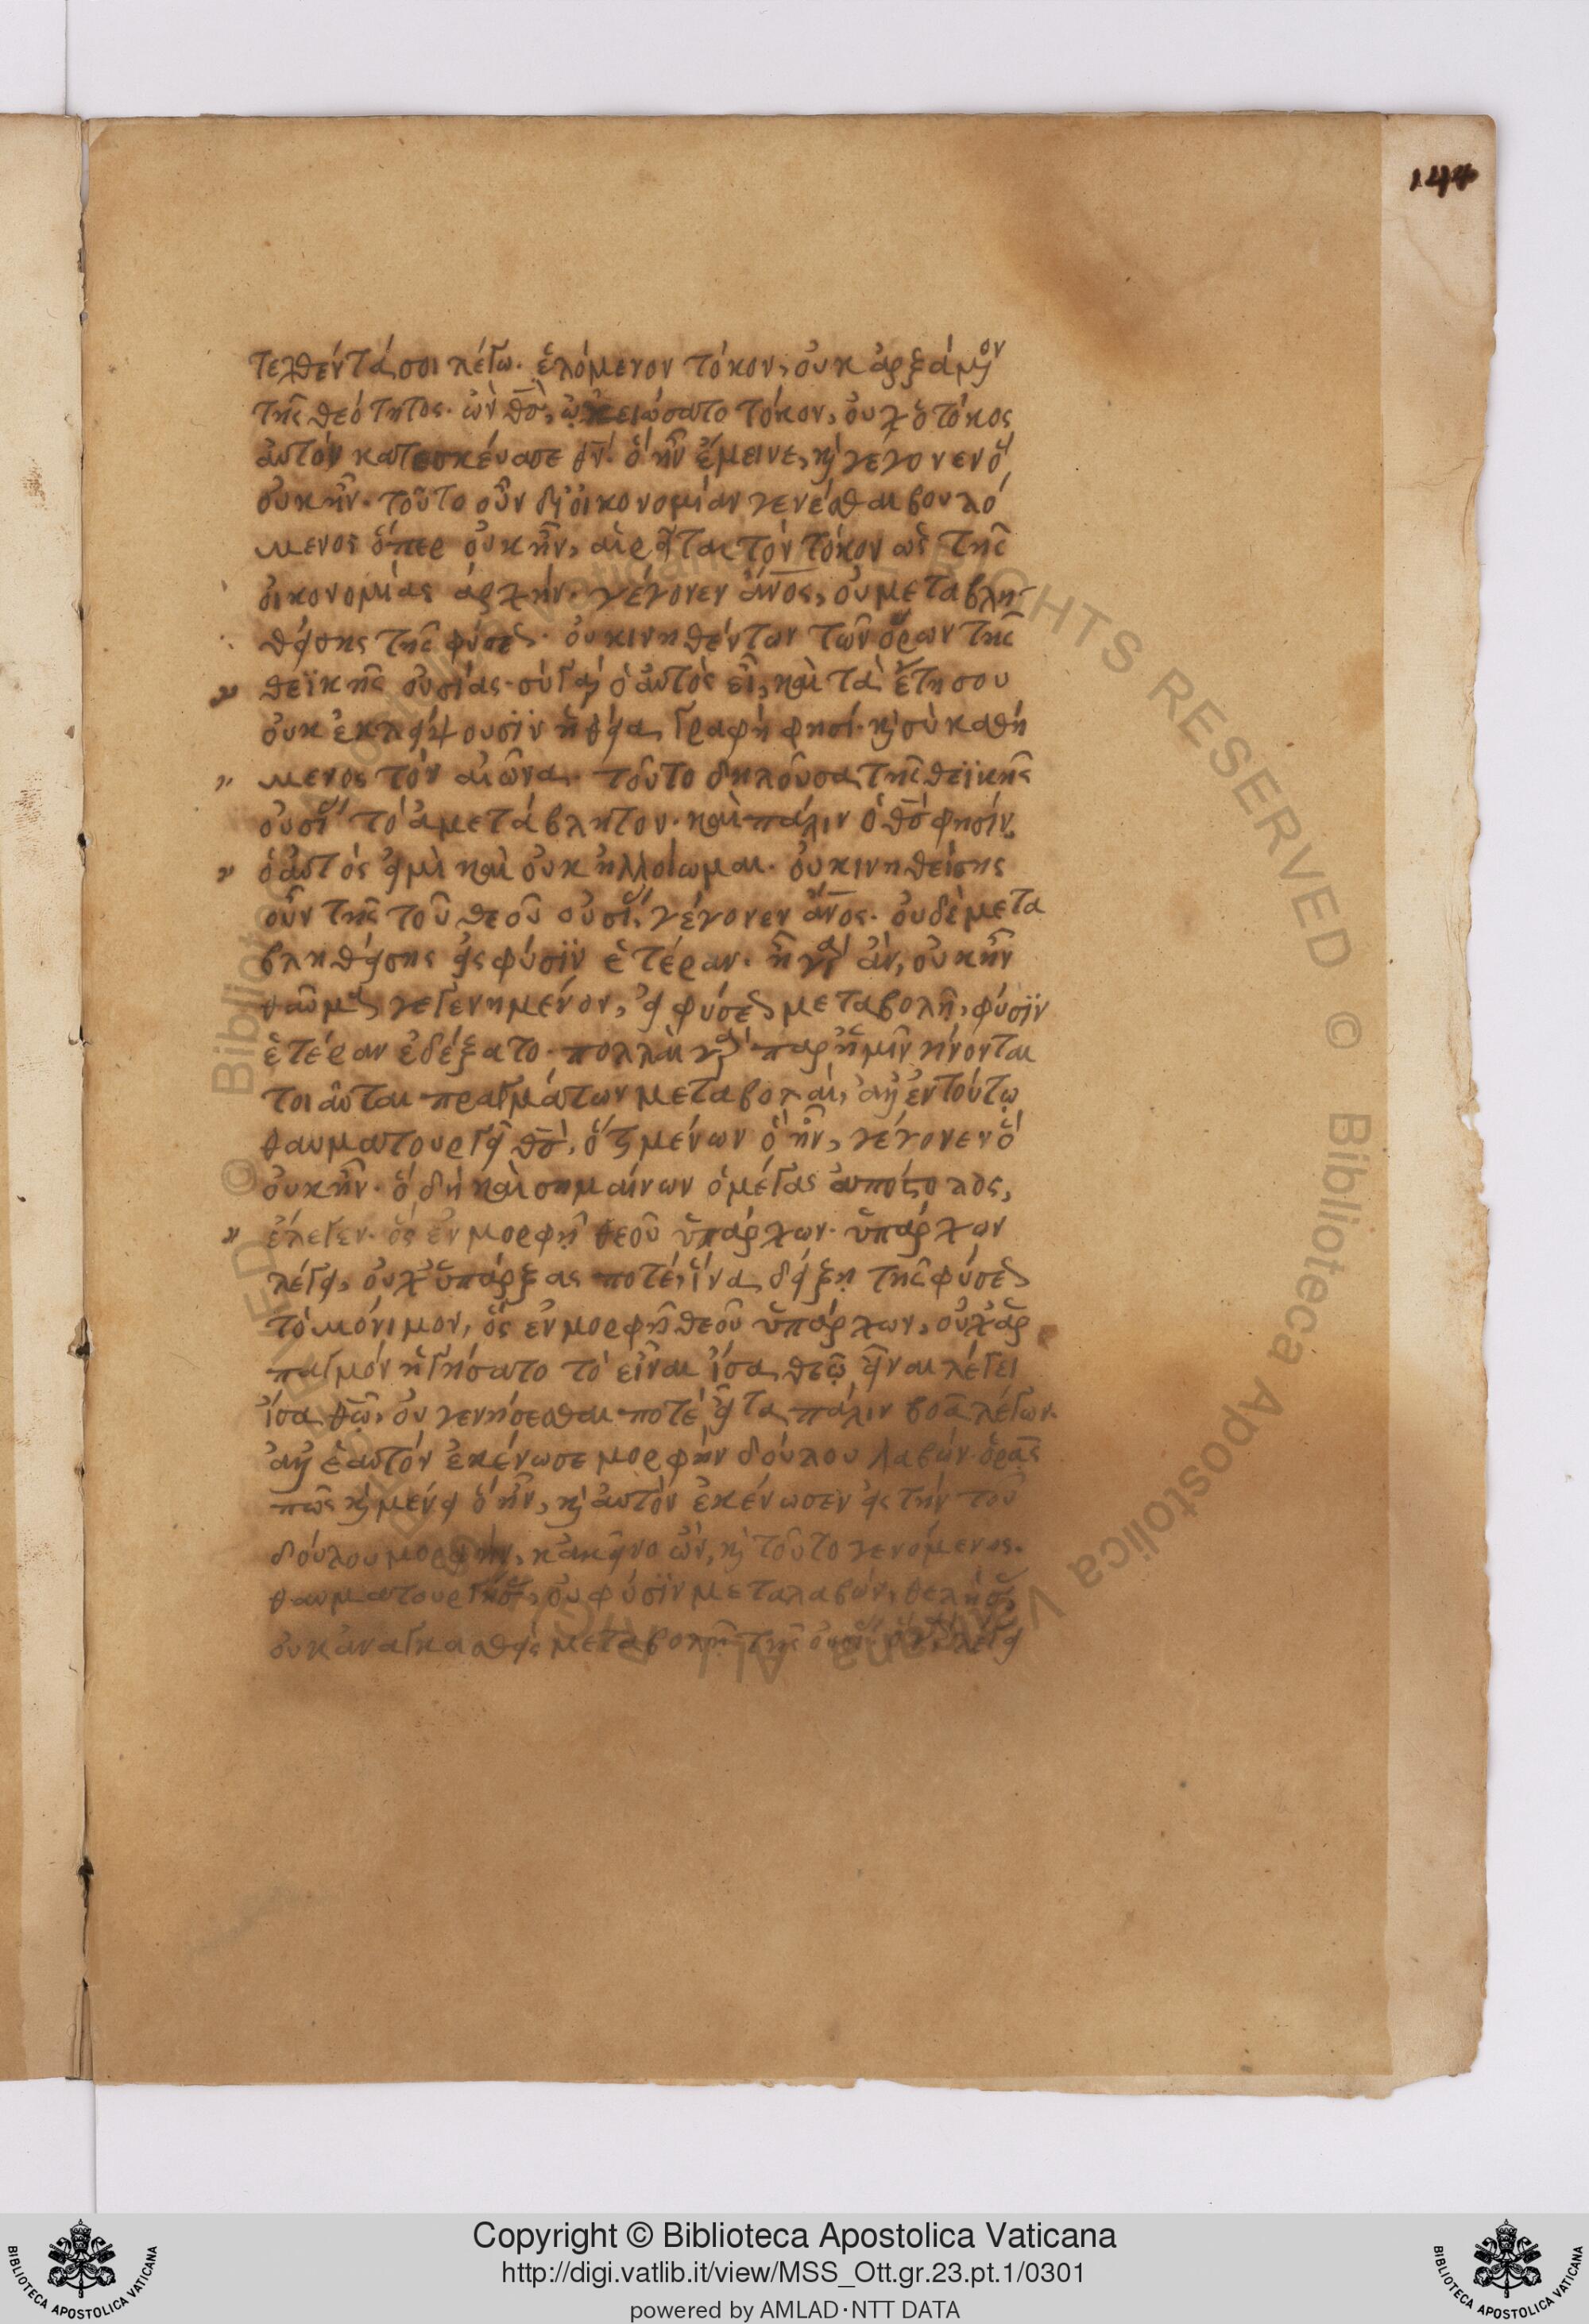 144
τεχθέντά σοι λέγω. ἑλόμενον τόκον, οὐκ ἀρξάμενον
τῆς θεότητος. ὢν θς̄, ᾠκειώσατο τόκον, οὐχ ὁ τόκος
αὐτὸν κατεσκεύασε θν̄. ὃ ἦν ἔμεινε, καὶ γέγονεν ὃ
οὐκ ἦν. τοῦτο οὖν δι' οἰκονομίαν γενέσθαι βουλό
μενος ὅπερ οὐκ ἦν, αἱρεῖται τὸν τόκον ὡς τῆς
οἰκονομίας ἀρχήν. γέγονεν ἄνος, οὐ μεταβλη
θείσης τῆς φύσεως. οὐ κινηθέντων τῶν ὅρων τῆς
θεϊκῆς οὐσίας. σὺ γὰρ ὁ αὐτὸς εἶ, καὶ τὰ ἔτη σου
οὐκ ἐκλείψουσϊν ἡ θεία γραφή φησί. καὶ σὺ καθή
μενος τὸν αἰῶνα. τοῦτο δηλοῦσα τῆς θεϊκῆς
οὐσίας τὸ ἀμετάβλητον. καὶ πάλιν ὁ θς̄ φησίν
ὁ αὐτός εἰμὶ καὶ οὐκ ἠλλοίωμαι. οὐ κινηθείσης
οὖν τῆς τοῦ θεοῦ οὐσίας, γέγονεν ἄνος. οὐδὲ μετα
βληθείσης εἰς φύσϊν ἑτέραν. ἦ γὰρ ἂν, οὐκ ἦν
θαῦμα γεγενημένον, εἰ φύσεως μεταβολῆ, φύσϊν
ἑτέραν ἐδέξατο. πολλαὶ γὰρ παρ' ἡμῖν γίνονται
τοιαῦται πραγμάτων μεταβολαὶ, ἀλλ' ἐν τούτῳ
θαυματουργεῖ θς̄, ὅτι μένων ὃ ἦν, γέγονεν ὃ
οὐκ ἦν. ὃ δὴ καὶ σημαίνων ὁ μέγας ἀπόστολος,
ἔλεγεν. ὃς ἐν μορφῇ θεοῦ ὑπάρχων. ὑπάρχων
λέγει, οὐχ ὑπάρξας ποτέ, ἵνα δείξῃ τῆς φύσεως
τὸ μόνιμον, ὃς ἐν μορφῇ θεοῦ ὑπάρχων, οὐχ ἁρ
παγμὸν ἡγήσατο τὸ εἶναι ἴσα θεῷ εἶναι λέγει
ἴσα θῶ, οὐ γενήσεσθαι ποτέ εἶτα πάλιν βοᾶ λέγων.
ἀλλ' ἑαυτὸν ἐκένωσε μορφὴν δούλου λαβών. ὁρᾶς
πῶς καὶ μένει ὃ ἦν, καὶ αὐτὸν ἐκένωσεν εἰς τὴν τοῦ
δούλου μορφὴν, κἀκεῖνο ὢν, καὶ τοῦτο γενόμενος.
θαυματουργήσας, οὐ φύσϊν μεταλαβών, θελήσας,
οὐκ ἀναγκασθεὶς μεταβολῇ τῆς οὐσίας
Copyright © Biblioteca Apostolica Vaticana
http://digi.vatlib.it/view/MSS_Ott.gr.23.pt.1/0301
powered by AMLAD·NTT DATA